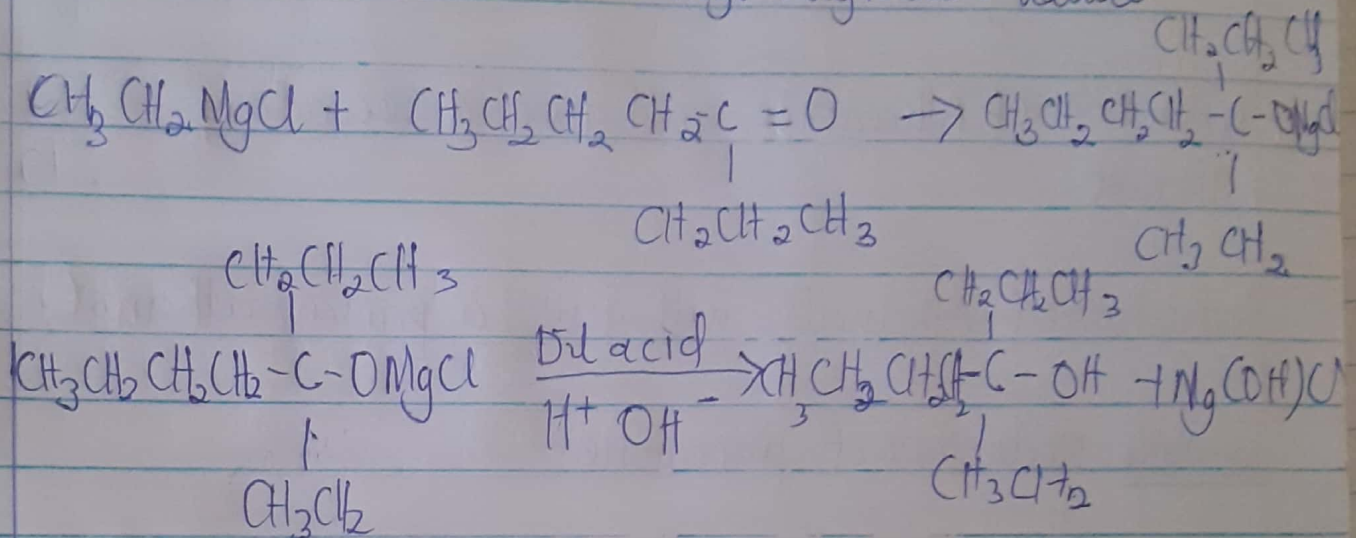 CH2CH2CH3
CH3CH2MgCl + CH3CH2CH2CH2-C=O → CH3CH2CH2CH2-C-OMgCl
|
CH2CH2CH3 CH3CH2
CH2CH2CH3 CH2CH2CH3
CH3CH2CH2CH2-C-OMgCl Dil acid → CH3CH2CH2CH2-C-OH + Mg(OH)Cl
H+ OH-
CH3CH2 CH3CH2